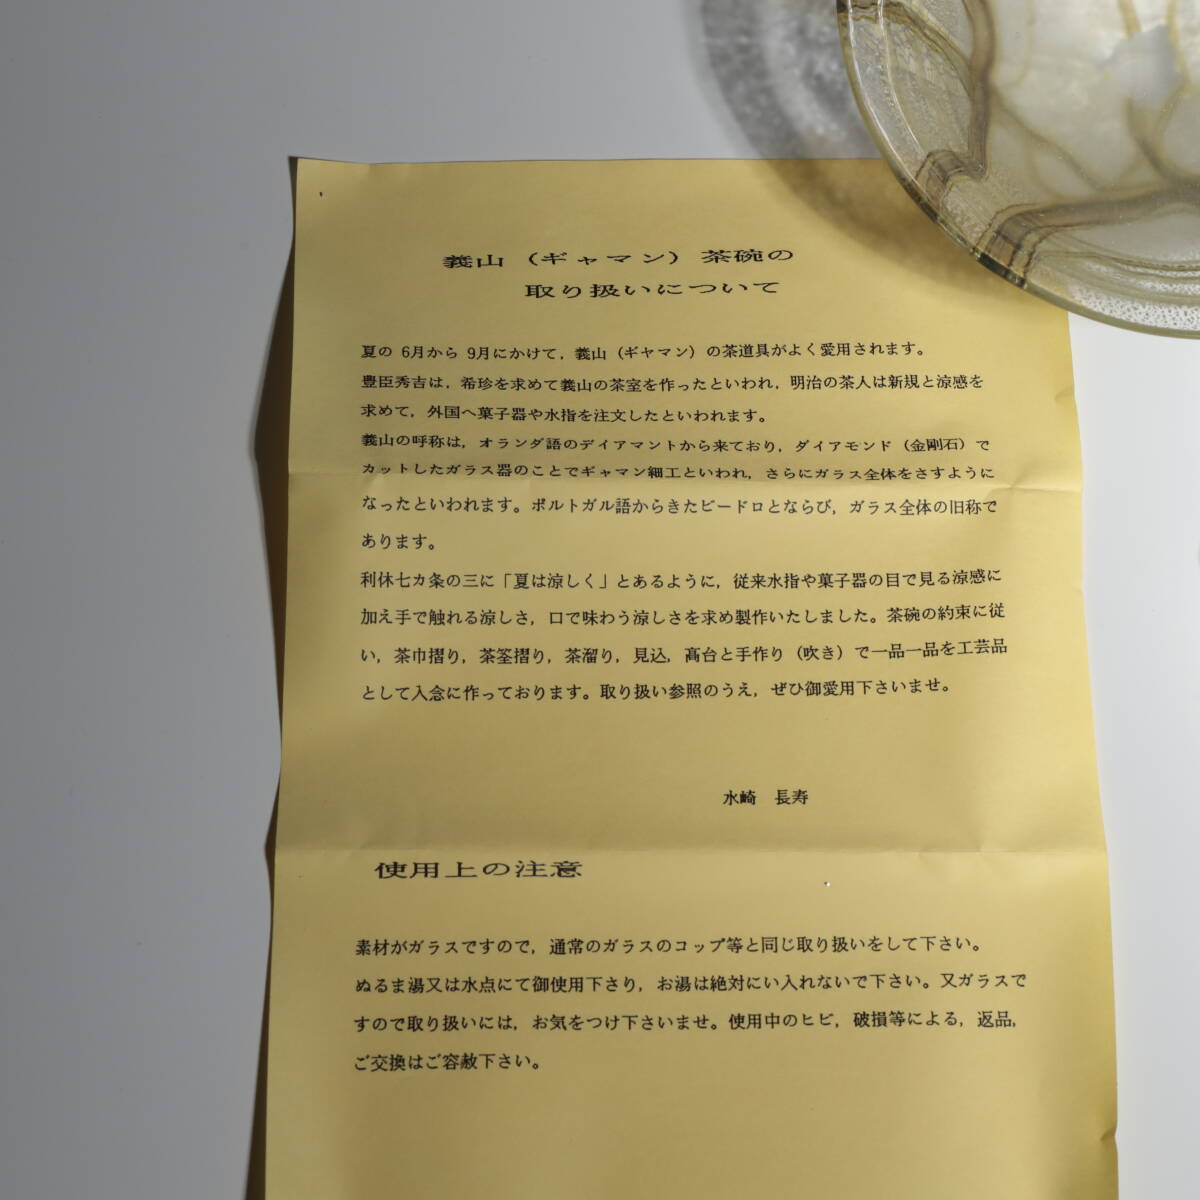 義山（ギャマン）茶碗の
取り扱いについて
夏の 6月から 9月にかけて，義山（ギヤマン）の茶道具がよく愛用されます。
豊臣秀吉は，希珍を求めて義山の茶室を作ったといわれ，明治の茶人は新規と涼感を
求めて，外国へ菓子器や水指を注文したといわれます。
義山の呼称は，オランダ語のデイアマントから来ており，ダイアモンド（金剛石）で
カットしたガラス器のことでギャマン細工といわれ，さらにガラス全体をさすように
なったといわれます。ポルトガル語からきたビードロとならび，ガラス全体の旧称で
あります。
利休七カ条の三に「夏は涼しく」とあるように，従来水指や菓子器の目で見る涼感に
加え手で触れる涼しさ，口で味わう涼しさを求め製作いたしました。茶碗の約束に従
い，茶巾摺り，茶筌摺り，茶溜り，見込，高台と手作り（吹き）で一品一品を工芸品
として入念に作っております。取り扱い参照のうえ，ぜひ御愛用下さいませ。
水崎　長寿
使用上の注意
素材がガラスですので，通常のガラスのコップ等と同じ取り扱いをして下さい。
ぬるま湯又は水点にて御使用下さり，お湯は絶対にい入れないで下さい。又ガラスで
すので取り扱いには，お気をつけ下さいませ。使用中のヒビ，破損等による，返品，
ご交換はご容赦下さい。